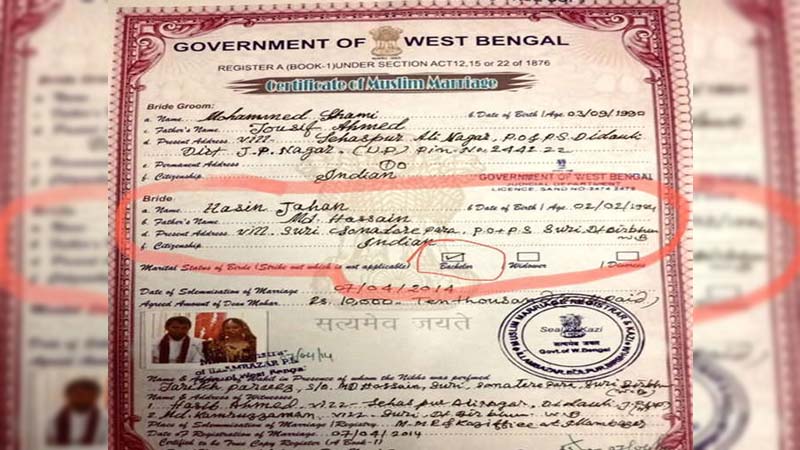 GOVERNMENT OF WEST BENGAL
REGISTER A (BOOK-1) UNDER SECTION ACT 12,15 or 22 of 1876
Certificate of Muslim Marriage
Bride Groom:
a. Name Mohammed Shami b. Date of Birth / Age. 03/09/1990
c. Father's Name Tousif Ahmed
d. Present Address Vill- Sehaspur Ali Nagar, P.O & P.S. Didauli
Dist J.P. Nagar, (U.P) Pin No. 244222
e. Permanent Address Do
f. Citizenship Indian
GOVERNMENT OF WEST BENGAL
JUDICIAL DEPARTMENT
Bride
a. Name Hasin Jahan b. Date of Birth / Age. 02/02/
c. Father's Name Md. Hassain
d. Present Address Vill. Suri Sonatore para, P.O + P.S Suri, Dt Birbhum
W.B
f. Citizenship Indian
Marital Status of Birde (Strike out which is not applicable) Bachelor Widower Divorcee
Date of Solemnisation of Marriage 07/04/2014
Agreed Amount of Dean Mohar Rs. 10,000- Ten thousand Paid)
सत्यमेव जयते
MUSLIM MARRIAGE REGISTRAR & KAZI
Seal Kazi
Govt. of W. Bengal
of ILLAMBAZAR P.S.
West Bengal
Name & Address of Wakil in Presence of whom the Nikha was perfomed
S/o. MD Hossain, Suri, Sonatore Para, Suri Birbhum
Name and Address of Witnesses
Ahmed, Vill- Sehaspur Alinagar, Didauli
2. Md. Kamruzzaman, Vill- Suri, Dt Birbhum W.B
Place of Solemnisation of Marriage / Registry M.M.R & Kazi office at Illambazar
Date of Registration of Marriage 07/04/2014
Certified to be True Copy Register (A Book-1)